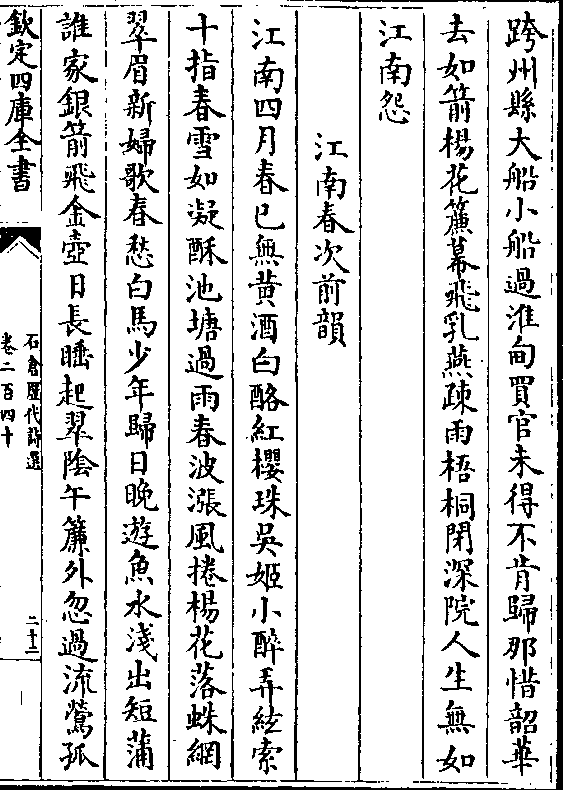 跨州縣大船小船過淮甸買官未得不肯歸那惜韶華
去如箭楊花簾幕飛乳燕疎雨梧桐閉深院人生無如
江南怨
江南春次前韻
江南四月春已無黄酒白酪紅櫻珠吳姬小醉弄絃索
十指春雪如凝酥池塘過雨春波漲風捲楊花落蛛網
翠眉新婦歌春愁白馬少年歸日晚遊魚水淺出短蒲
誰家銀箭飛金壺日長睡起翠陰午簾外忽過流鶯孤
欽定四庫全書
石倉歷代詩選
卷二百四十
二十二